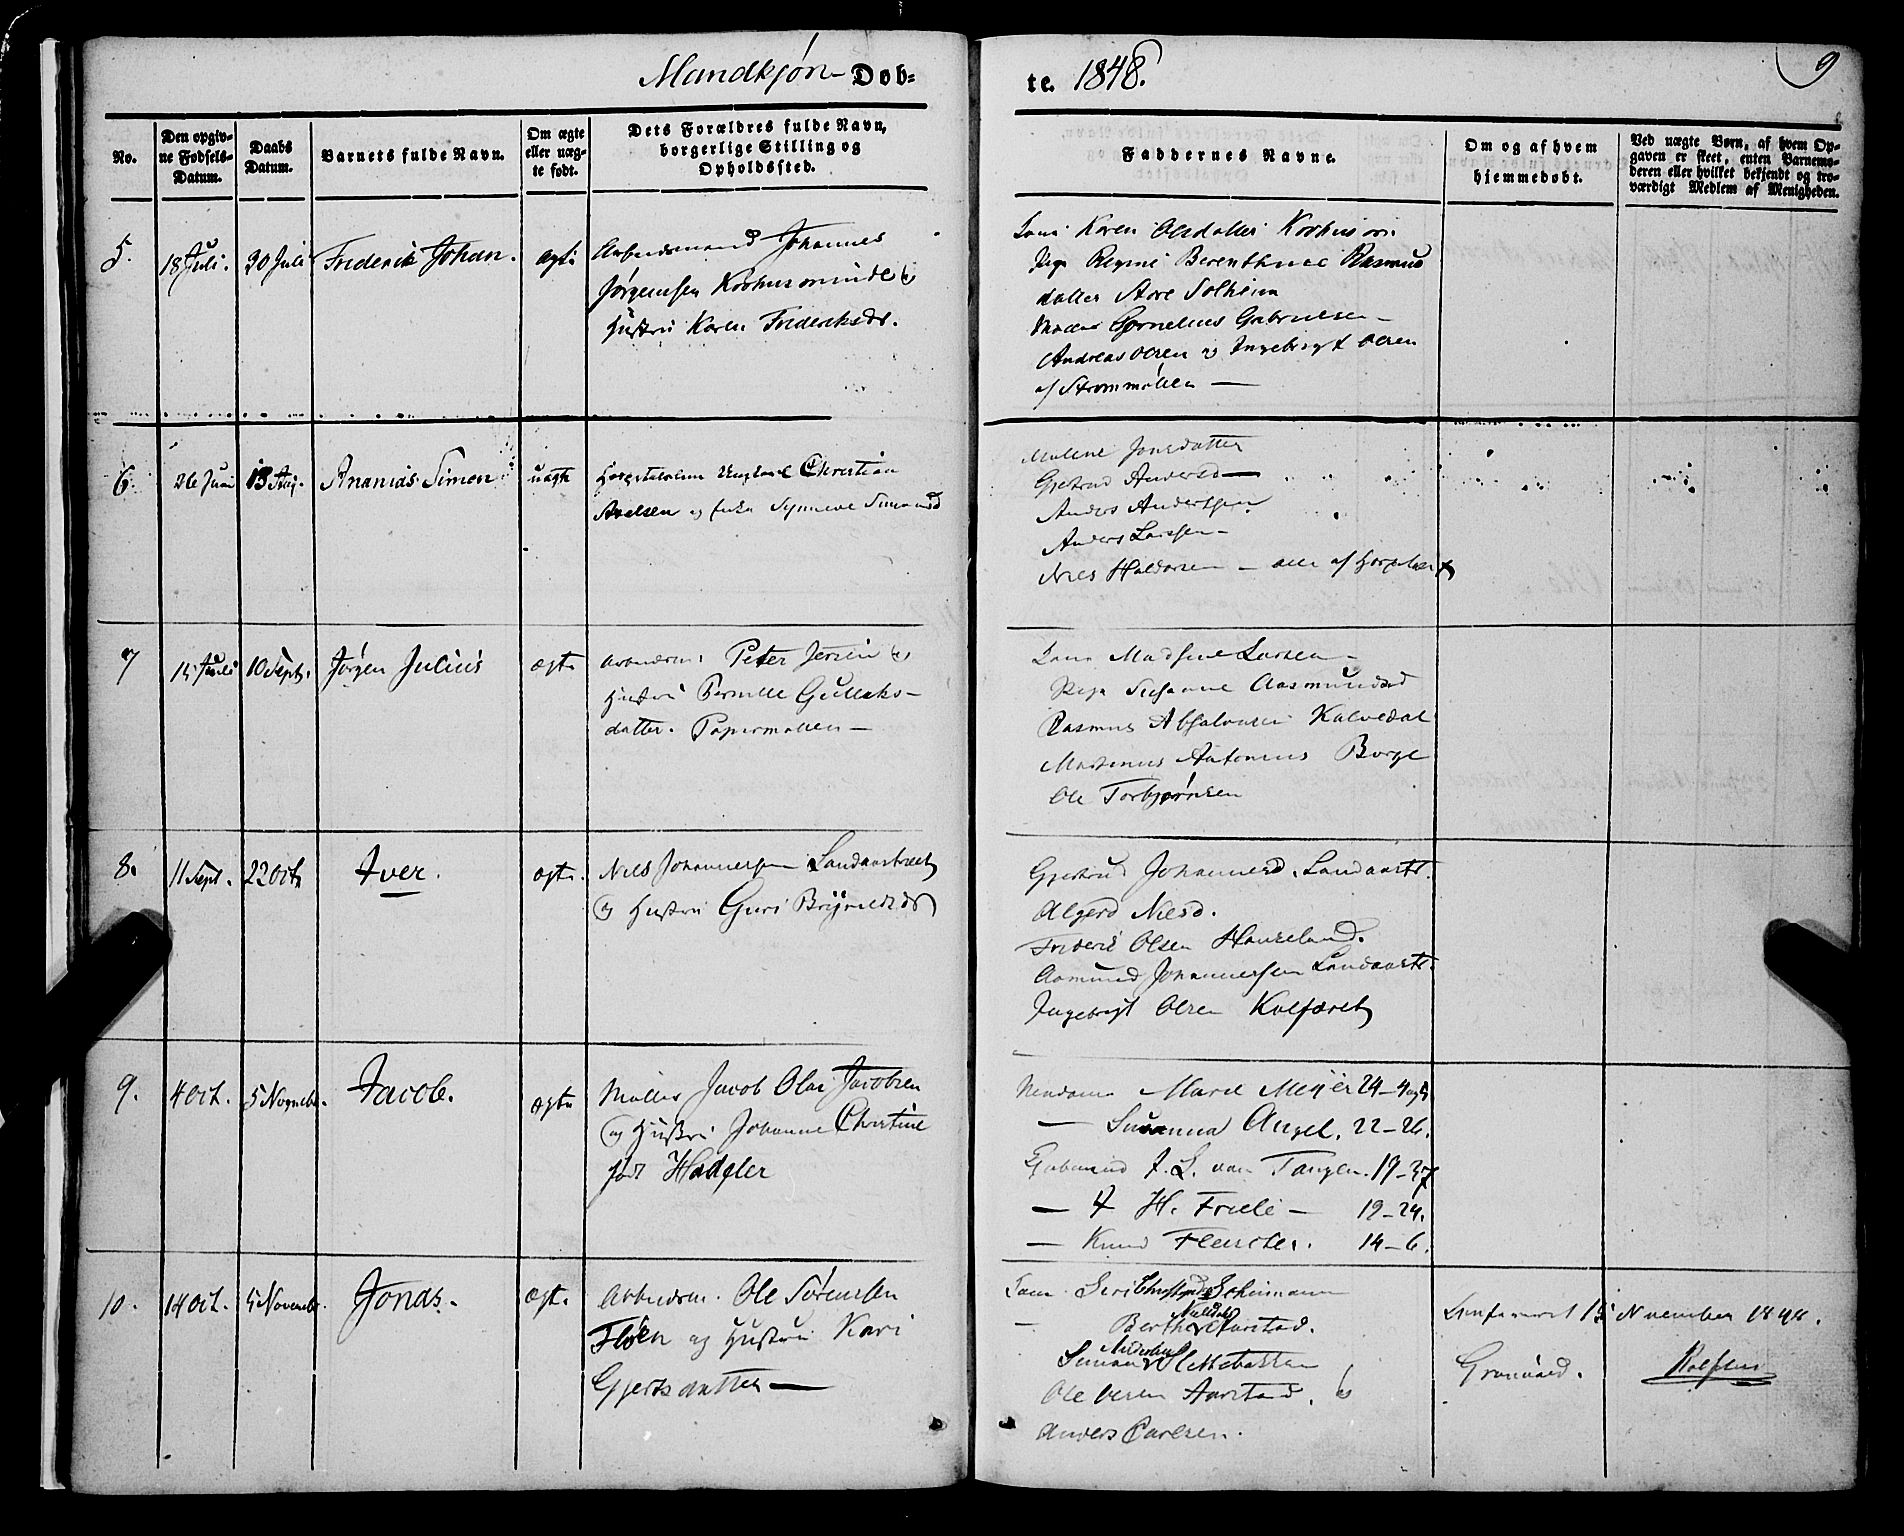 Mandkjøn Døb=
te. 1848.
9
No.
Den opgiv=
ne Fødsels=
Datum.
Daabs
Datum.
Barnets fulde Navn.
Om ægte
eller uæg=
te født.
Dets Forældres fulde Navn,
borgerlige Stilling og
Opholdssted.
Faddernes Navne.
Om og af hvem
hjemmedøbt.
Ved uægte Børn, af hvem Op=
gaven er skeet, enten Varnemo=
deren eller hvilket bekjendt og tro=
værdigt Medlem af Menigheden.
5.
18 Juli.
30 Juli
Frederik Johan.
ægte
Arbeidsmand Johannes
Jørgensen
Hustru Karen Frederiksdr.
Karen Olsdatter
Pige Regine Berenthine Rasmus
datter Aare Solheim
Cornelius Gabrielsen -
Andreas Olsen og Ingebrigt Olsen
af Strømmøllen —
6.
26 Juni
13 Aug.
Ananias Simon
uægte
Christian
Axelsen og Synneve Simonsd
Malene Jonsdatter
Gjertrud Andersd —
Anders Anderssen
Anders Larssen -
Niels Haldorsen - alle af
7
15 Juli
10 Septr.
Jørgen Julius
ægte
Arbeidsm. Peter Jensen og
Hustru Pernille Gulleks-
datter. Papirmøllen —
Madsine Larsen -
Pige Susanne Aasmundsd
Rasmus Absalonsen Kalvedal
Martinus Antonius Borge
Ole Torbjørnsen
8.
11 Sept.
22 Octr
Iver.
ægte.
Niels Johannessen Landaastræet
og Hustru Guri Brynildsdr
Gjertrud Johannesd. Landaastr.
Algerd Nilsd.
Frederik Olsen Haukeland.
Aamund Johannessen Landaastr.
Ingebrigt Olsen Kalfaret
9.
4 Oct.
5 Novembr.
Jacob.
ægte
Møller Jacob Olai Jacobsen
og Hustru Johanne Christine
født
Madame Marie Meyer 24-
— Susanna Angel. 22-26.
J. L. von Tangen. 19-37
— H. Friele - 19-24.
— Knud 14-6.
10.
14 Oct.
5 Novembr.
Jonas.
ægte.
Arbeidsm. Ole Sørenssen
Fløen og Hustru Kari
Gjertsdatter —
Siri
Berthe Aarstad.
Simon Slettebakken
Ole Olsen Aarstad.
Anders Carlsen.
November 1848.